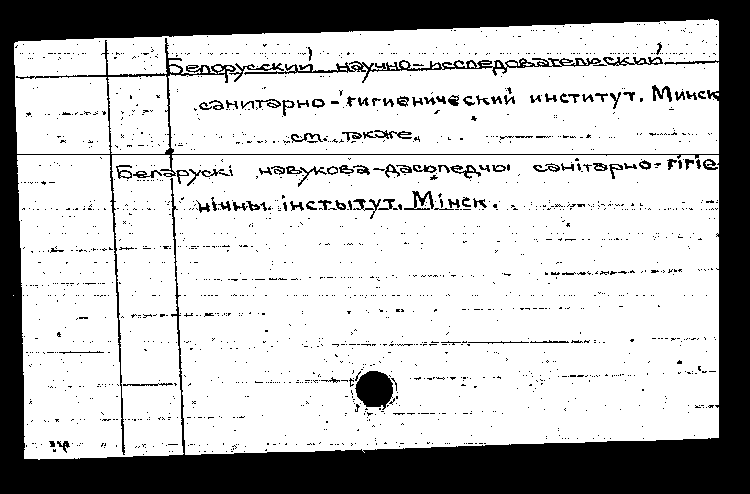 Белорусский научно-исследовательский
санитарно-гигиенический институт. Минск
см. также
Беларускі навукова-даследчы санітарна-гігіе-
нічны інстытут. Мінск.